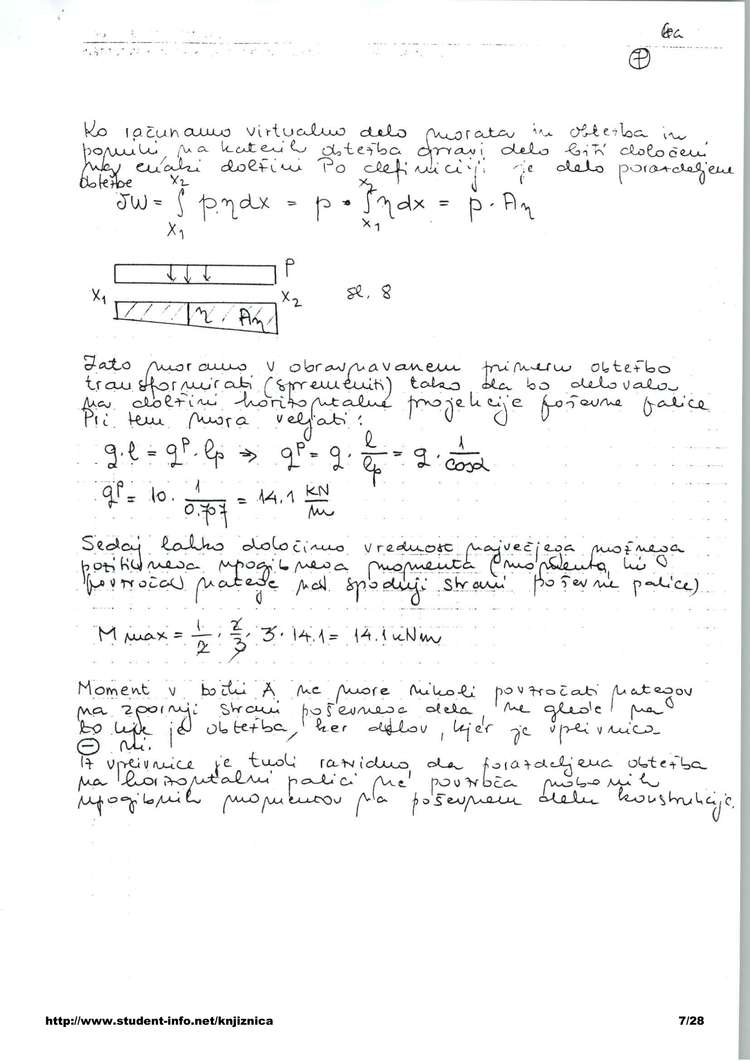 7
Ko računamo virtualno delo morata in obtežba in
pomiki na katerih obtežba opravi delo biti določeni
na enaki dolžini Po definiciji je delo porazdeljene
obtežbe
δW = ∫ₓ₁ˣ² p.η dx = p • ∫ₓ₁ˣ² η dx = p · Aη
p
x₁ η Aη x₂ sl. 8
Zato moramo v obravnavanem primeru obtežbo
transformirati (spremeniti) tako da bo delovala
na dolžini horizontalne projekcije poševne palice
Pri tem mora veljati:
g·l = qᵖ·lp ⇒ qᵖ = g · l/lp = g · 1/cosα
qᵖ = 10 · 1/0.707 = 14.1 KN/m
Sedaj lahko določimo vrednost največjega možnega
pozitivnega upogibnega momenta (momenta, ki
povzroča natege na spodnji strani poševne palice)
M max = 1/2 · 2/3 · 3 · 14.1 = 14.1 kNm
Moment v točki A ne more nikoli povzročati nategov
na zgornji strani poševnega dela, ne glede na
to kje je obtežba, ker delov, kjer je vplivnica
⊖ ni.
Iz vplivnice je tudi razvidno da porazdeljena obtežba
na horizontalni palici ne povzroča nobenih
upogibnih momentov na poševnem delu konstrukcije.
http://www.student-info.net/knjiznica 7/28